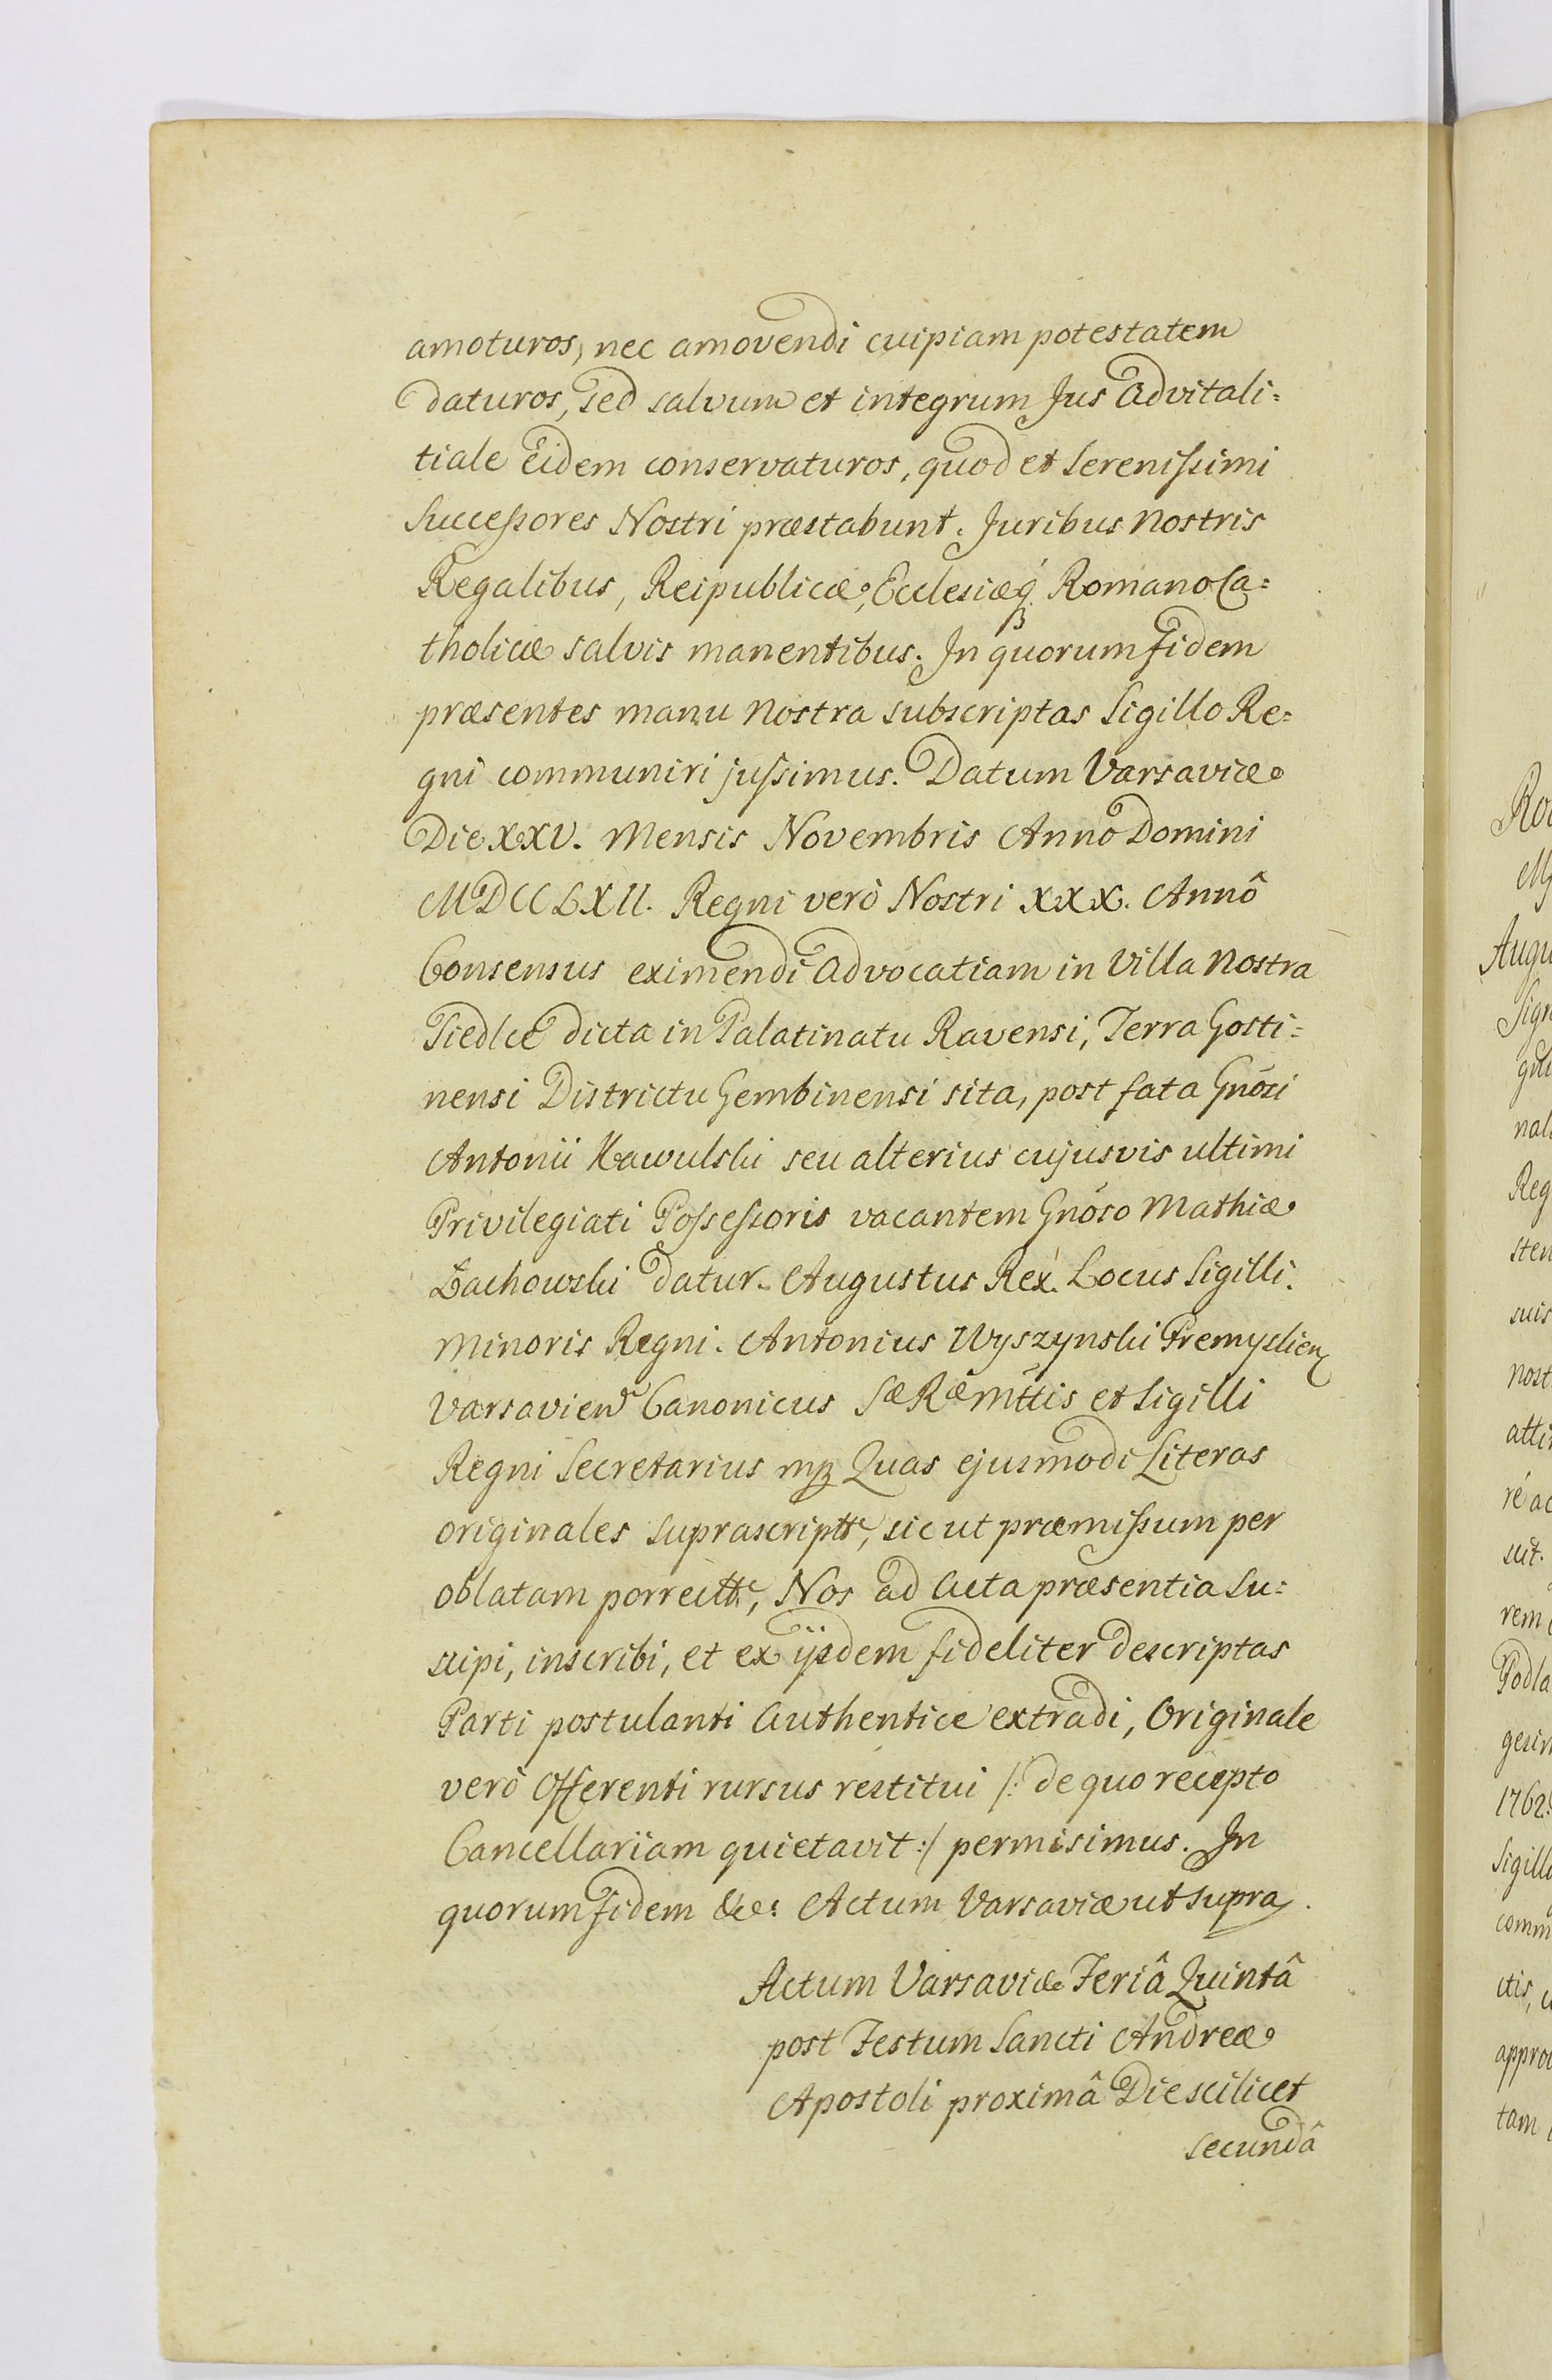 amoturos, nec amovendi cuipiam potestatem
daturos, sed salvum et integrum Jus advitali=
tiale Eidem conservaturos, quod et Serenissimi
Successores Nostri præstabunt. Juribus Nostris
Regalibus, Reipublicæ, Ecclesiæq́ Romano Ca=
tholicæ salvis manentibus. In quorum fidem
præsentes manu Nostra subscriptas Sigillo Re=
gni communiri jussimus. Datum Varsaviæ
Die XXV. Mensis Novembris Anno Domini
MDCCLXII. Regni verò Nostri XXX. Annô
Consensus eximendi advocatiam in Villa Nostra
Siedlce dicta in Palatinatu Ravensi, Terra Gosti=
nensi Districtu Gembinensi sita, post fata Gnosi
Antonii Kawulski seu alterius cujusvis ultimi
Privilegiati Possessoris vacantem Gnoso Mathiæ
Lachowski datur. Augustus Rex. Locus Sigilli.
Minoris Regni. Antonius Wyszynski Premyslien
Varsavien Canonicus Sæ Ræ Mttis et Sigilli
Regni Secretarius mp Quas ejusmodi Literas
originales suprascriptt, sicut præmissum per
oblatam porrectt, Nos ad Acta præsentia su=
scipi, inscribi, et ex ijsdem fideliter descriptas
Parti postulanti Authentice extradi, Originale
verò Offerenti rursus restitui /: de quo recepto
Cancellariam quietavit :/ permisimus. In
quorum fidem &c: Actum Varsaviæ ut supra.
Actum Varsaviæ Feriâ Quintâ
post Festum Sancti Andreæ
Apostoli proximâ Die scilicet
secundâ
Augu
Sign
nal
Reg
sten
suis
nost
atti
re ac
scit.
rem
Podla
gesim
1762.
Sigill
comm
ctis,
appro
tam